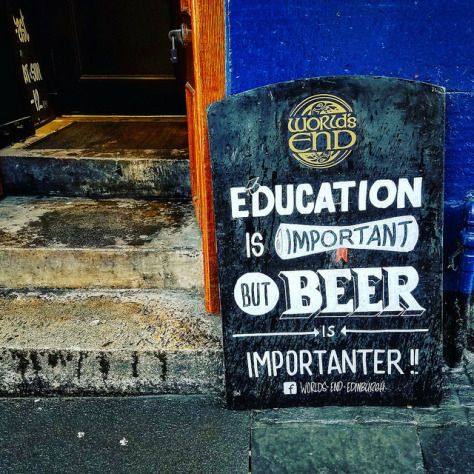 WORLD'S
END
EDUCATION
IS IMPORTANT
BUT BEER
IS
IMPORTANTER!!
WORLDS END-EDINBURGH